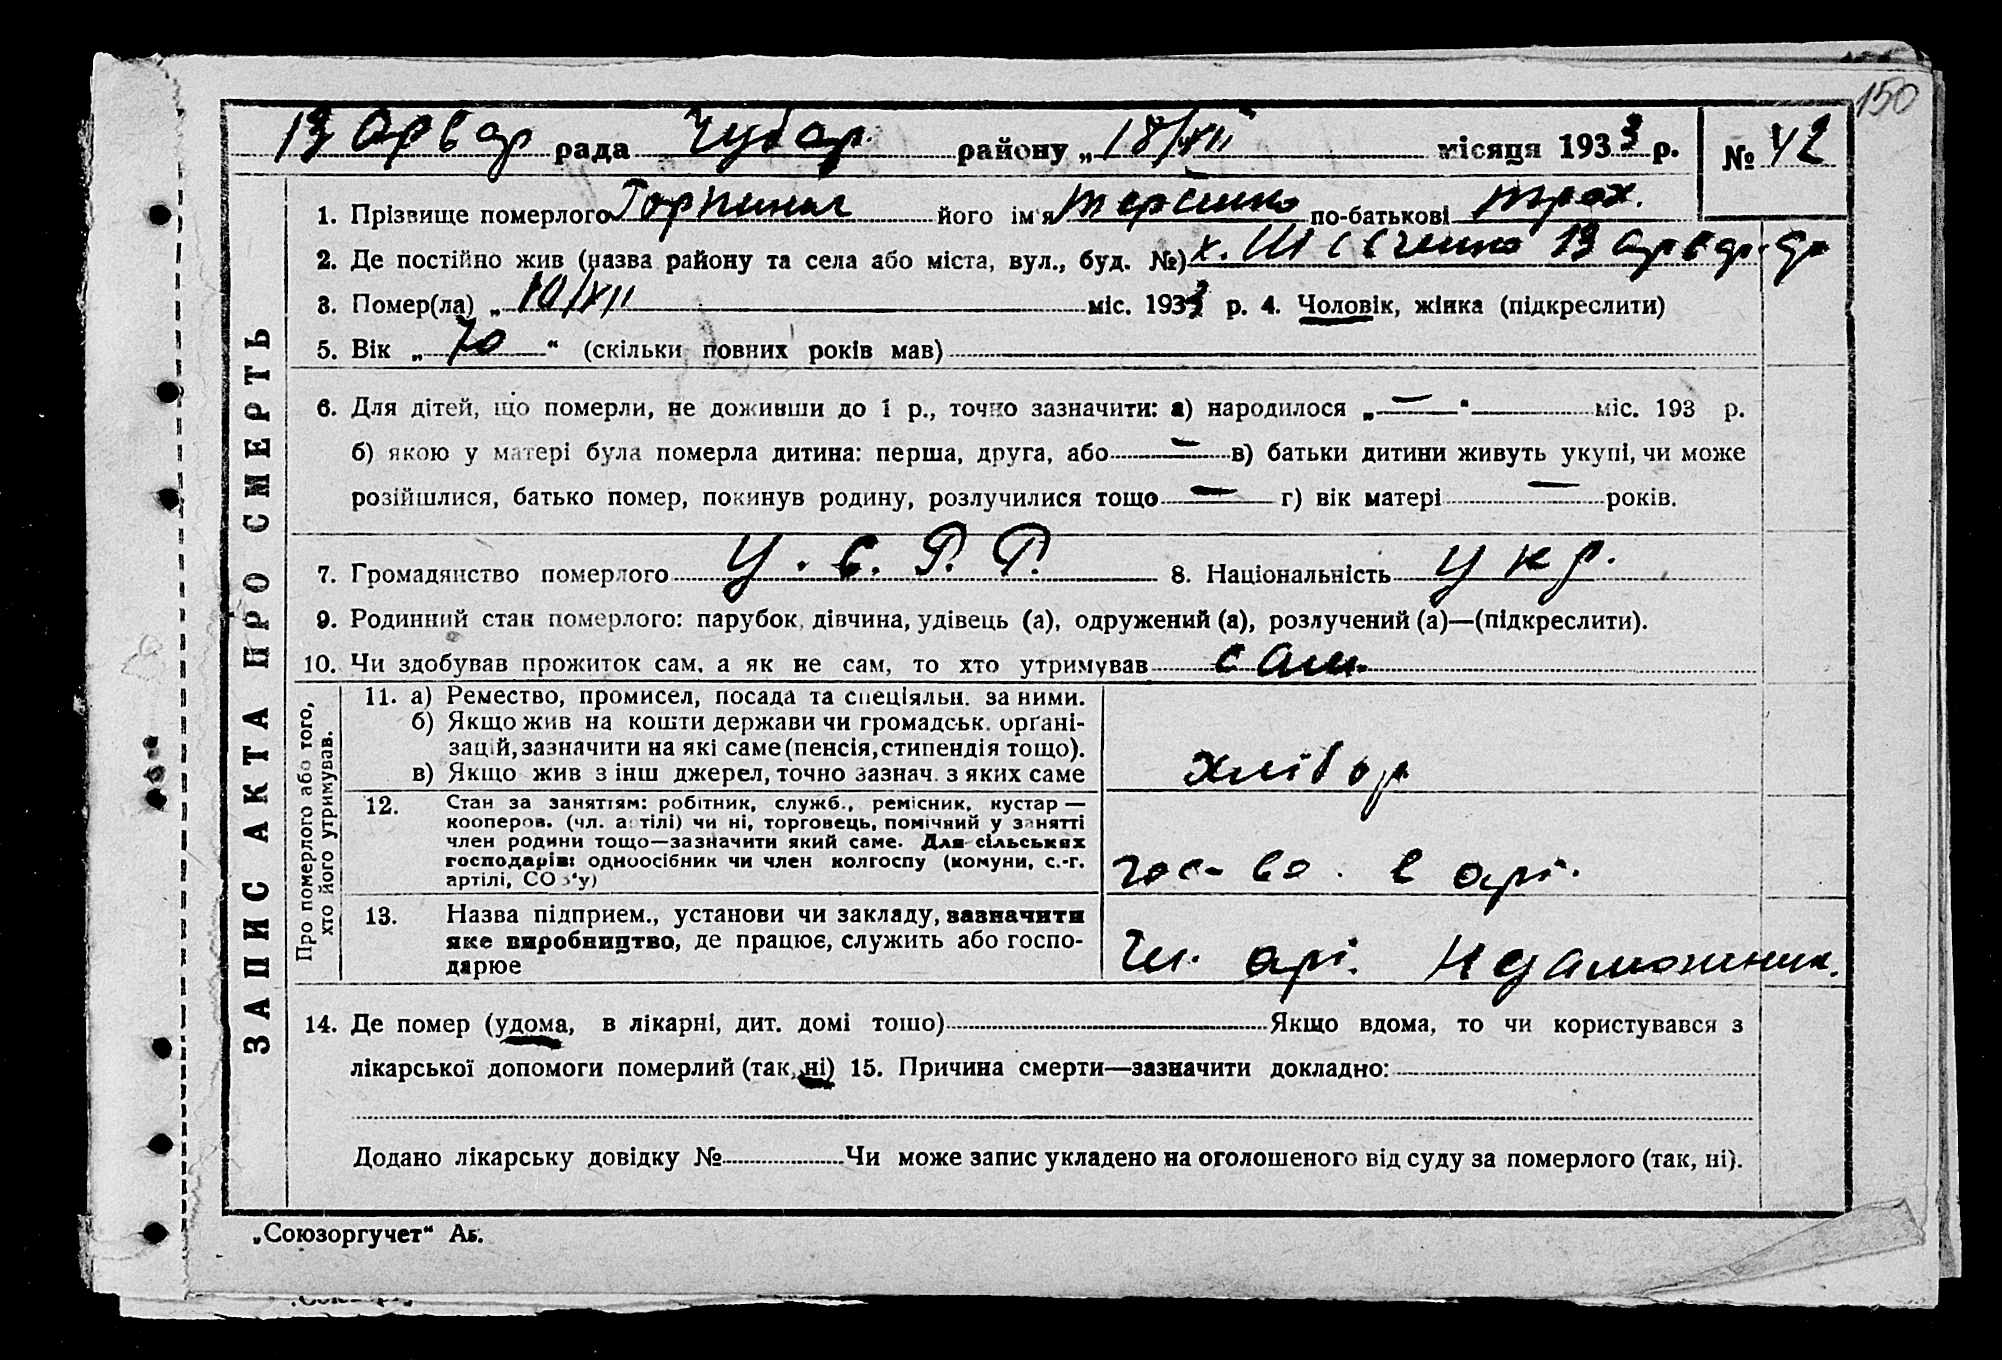 150
Варвар рада Чубар. районy „ 18/XII місяця 1933 р. № 42
1. Прізвище померлого Горпинич його ім'я Терешко по-батькові Трох.
2. Де постійно жив (назва району та села або міста, вул., буд. №) х. Шевченко Варвар. р
3. Помер(ла) „ 10/XII міс. 1933 р. 4. Чоловік, жінка (підкреслити)
5. Вік „ 70 “ (скільки повних років мав)
6. Для дітей, що померли, не доживши до 1 р., точно зазначити: а) народилося „ — “ міс. 193 р.
б) якою у матері була померла дитина: перша, друга, або — в) батьки дитини живуть укупі, чи може
розійшлися, батько помер, покинув родину, розлучилися тощо — г) вік матері — років.
7. Громадянство померлого У. С. Р. Р. 8. Національність укр.
9. Родинний стан померлого: парубок, дівчина, удівець (а), одружений (а), розлучений (а)—(підкреслити).
10. Чи здобував прожиток сам, а як не сам, то хто утримував сам.
ЗАПИС АКТА ПРО СМЕРТЬ
Про померлого або того, хто його утримував.
11. а) Ремество, промисел, посада та спеціяльн. за ними.
б) Якщо жив на кошти держави чи громадськ. органі-
зацій, зазначити на які саме (пенсія, стипендія тощо).
в) Якщо жив з інш джерел, точно зазнач. з яких саме
хлібор
12. Стан за заняттям: робітник, служб., ремісник, кустар —
кооперов. (чл. артілі) чи ні, торговець, помічний у занятті
член родини тощо—зазначити який саме. Для сільських
господарів: одноосібник чи член колгоспу (комуни, с.-г.
артілі, СОЗ'у)
гос-во. в арт.
13. Назва підприєм., установи чи закладу, зазначити
яке виробництво, де працює, служить або госпо-
дарює
Чл. арт. Незаможник.
14. Де помер (удома, в лікарні, дит. домі тощо) Якщо вдома, то чи користувався з
лікарської допомоги померлий (так, ні) 15. Причина смерти—зазначити докладно:
Додано лікарську довідку № Чи може запис укладено на оголошеного від суду за померлого (так, ні).
„Союзоргучет“